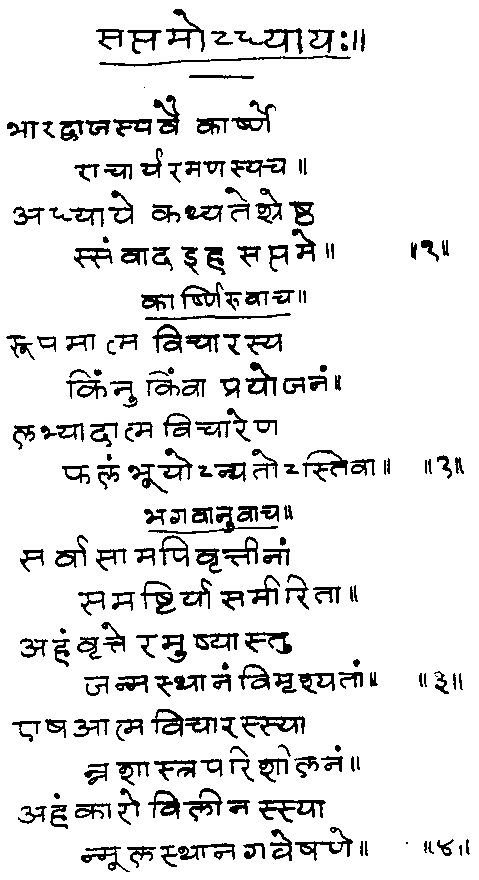 सप्तमोऽध्यायः॥
भारद्वाजस्यवै कार्ष्णे
राचार्यरमणस्यच॥
अध्याये कथ्यतेश्रेष्ठ
स्संवाद इह सप्तमे॥ ॥१॥
कार्ष्णिरुवाच॥
रूपमात्म विचारस्य
किंनु किंवा प्रयोजनं॥
लभ्यादात्म विचारेण
फलं भूयोऽन्यतोऽस्तिवा॥ ॥२॥
भगवानुवाच॥
सर्वासामपिवृत्तीनां
समष्टिर्या समीरिता॥
अहंवृत्ते रमुष्यास्तु
जन्मस्थानं विमृश्यतां॥ ॥३॥
एष आत्म विचारस्स्या
न्न शास्त्र परिशीलनं॥
अहंकारो विलीन स्स्या
न्मूलस्थान गवेषणे॥ ॥४॥